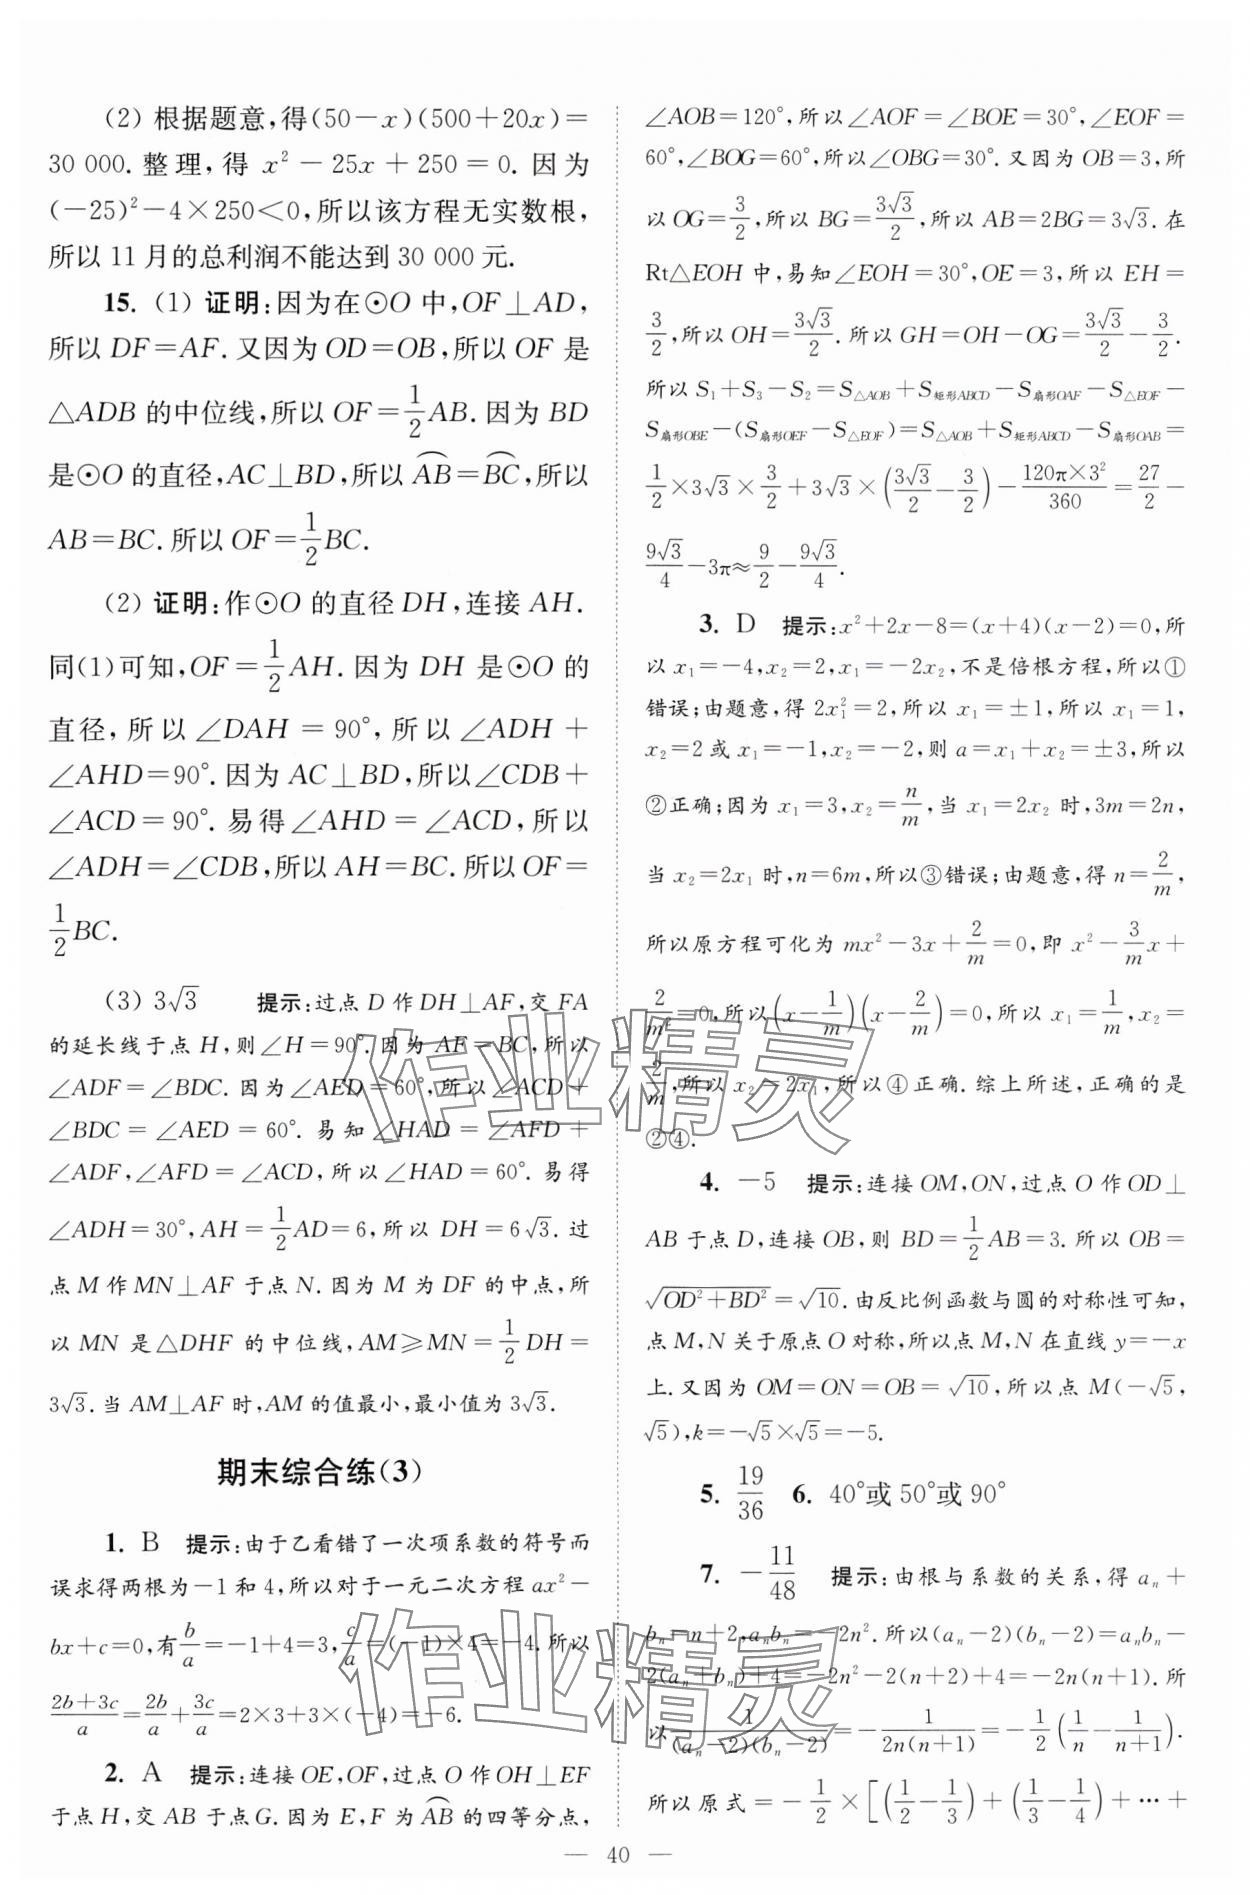 (2) 根据题意,得(50－x)(500＋20x)＝
30 000. 整理,得 x²－25x＋250＝0. 因为
(－25)²－4×250＜0,所以该方程无实数根,
所以 11 月的总利润不能达到 30 000 元.
15. (1) 证明:因为在⊙O 中,OF⊥AD,
所以 DF＝AF. 又因为 OD＝OB,所以 OF 是
△ADB 的中位线,所以 OF＝1/2 AB. 因为 BD
是⊙O 的直径,AC⊥BD,所以 ⌒AB＝⌒BC,所以
AB＝BC. 所以 OF＝1/2 BC.
(2) 证明:作⊙O 的直径 DH,连接 AH.
同(1)可知,OF＝1/2 AH. 因为 DH 是⊙O 的
直径,所以∠DAH＝90°,所以∠ADH＋
∠AHD＝90°. 因为 AC⊥BD,所以∠CDB＋
∠ACD＝90°. 易得∠AHD＝∠ACD,所以
∠ADH＝∠CDB,所以 AH＝BC. 所以 OF＝
1/2 BC.
(3) 3√3 提示:过点 D 作 DH⊥AF,交 FA
的延长线于点 H,则∠H＝90°. 因为 AF＝BC,所以
∠ADF＝∠BDC. 因为∠AED＝60°,所以∠ACD＋
∠BDC＝∠AED＝60°. 易知∠HAD＝∠AFD＋
∠ADF,∠AFD＝∠ACD,所以∠HAD＝60°. 易得
∠ADH＝30°,AH＝1/2 AD＝6,所以 DH＝6√3. 过
点 M 作 MN⊥AF 于点 N. 因为 M 为 DF 的中点,所
以 MN 是△DHF 的中位线,AM≥MN＝1/2 DH＝
3√3. 当 AM⊥AF 时,AM 的值最小,最小值为 3√3.
期末综合练(3)
1. B 提示:由于乙看错了一次项系数的符号而
误求得两根为－1 和 4,所以对于一元二次方程 ax²－
bx＋c＝0,有 b/a＝－1＋4＝3,c/a＝(－1)×4＝－4. 所以
(2b＋3c)/a＝2b/a＋3c/a＝2×3＋3×(－4)＝－6.
2. A 提示:连接 OE,OF,过点 O 作 OH⊥EF
于点 H,交 AB 于点 G. 因为 E,F 为 ⌒AB 的四等分点,
∠AOB＝120°,所以∠AOF＝∠BOE＝30°,∠EOF＝
60°,∠BOG＝60°,所以∠OBG＝30°. 又因为 OB＝3,所
以 OG＝3/2,所以 BG＝3√3/2,所以 AB＝2BG＝3√3. 在
Rt△EOH 中,易知∠EOH＝30°,OE＝3,所以 EH＝
3/2,所以 OH＝3√3/2. 所以 GH＝OH－OG＝3√3/2－3/2.
所以 S₁＋S₃－S₂＝S△AOB＋S矩形ABCD－S扇形OAF－S△EOF－
S扇形OBE－(S扇形OEF－S△EOF)＝S△AOB＋S矩形ABCD－S扇形OAB＝
1/2×3√3×3/2＋3√3×(3√3/2－3/2)－120π×3²/360＝27/2－
9√3/4－3π≈9/2－9√3/4.
3. D 提示:x²＋2x－8＝(x＋4)(x－2)＝0,所
以 x₁＝－4,x₂＝2,x₁＝－2x₂,不是倍根方程,所以①
错误;由题意,得 2x₁²＝2,所以 x₁＝±1,所以 x₁＝1,
x₂＝2 或 x₁＝－1,x₂＝－2,则 a＝x₁＋x₂＝±3,所以
②正确;因为 x₁＝3,x₂＝n/m,当 x₁＝2x₂ 时,3m＝2n,
当 x₂＝2x₁ 时,n＝6m,所以③错误;由题意,得 n＝2/m,
所以原方程可化为 mx²－3x＋2/m＝0,即 x²－3/m x＋
2/m²＝0,所以(x－1/m)(x－2/m)＝0,所以 x₁＝1/m,x₂＝
2/m,所以 x₂＝2x₁,所以④正确. 综上所述,正确的是
②④.
4. －5 提示:连接 OM,ON,过点 O 作 OD⊥
AB 于点 D,连接 OB,则 BD＝1/2 AB＝3. 所以 OB＝
√(OD²＋BD²)＝√10. 由反比例函数与圆的对称性可知,
点 M,N 关于原点 O 对称,所以点 M,N 在直线 y＝－x
上. 又因为 OM＝ON＝OB＝√10,所以点 M(－√5,
√5),k＝－√5×√5＝－5.
5. 19/36 6. 40°或 50°或 90°
7. －11/48 提示:由根与系数的关系,得 aₙ＋
bₙ＝n＋2,aₙbₙ＝－2n². 所以(aₙ－2)(bₙ－2)＝aₙbₙ－
2(aₙ＋bₙ)＋4＝－2n²－2(n＋2)＋4＝－2n(n＋1). 所
以 1/((aₙ－2)(bₙ－2))＝－1/(2n(n＋1))＝－1/2(1/n－1/(n＋1)).
所以原式＝－1/2×[(1/2－1/3)＋(1/3－1/4)＋⋯＋
— 40 —
作业精灵
作业精灵